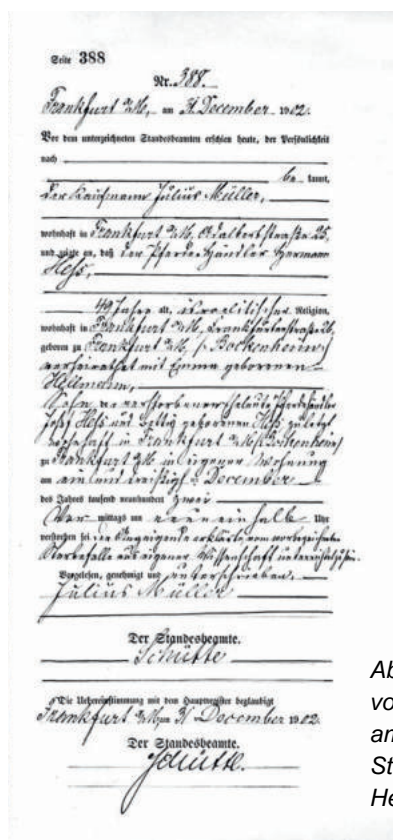 Seite 388
Nr. 388.
Frankfurt a/M, am 31. December 1902.
Vor dem unterzeichneten Standesbeamten erschien heute, der Persönlichkeit
nach
be kannt,
der Kaufmann Julius Müller,
wohnhaft in Frankfurt a/M, Adalbertstraße 25,
und zeigte an, daß der Pferdehändler Hermann
Heß,
49 Jahre alt, israelitischer Religion,
wohnhaft in Frankfurt a/M,
geboren zu Frankfurt a/M, (Bockenheim)
verheirathet mit Emma geborenen
Hellmann,
Sohn der verstorbenen Pferdehändler
Josef Heß und geborenen Heß, zuletzt
wohnhaft in Frankfurt a/M (Bockenheim)
zu Frankfurt a/M in eigener Wohnung
am ein und dreißigsten December
des Jahres tausend neunhundert zwei
Vor mittags um neun einhalb Uhr
verstorben sei. Der Anzeigende erklärte, vom vorbezeichneten
Sterbefalle aus eigener Wissenschaft unterrichtet zu sein.
Vorgelesen, genehmigt und unterschrieben.
Julius Müller
Der Standesbeamte.
Schütte
Die Uebereinstimmung mit dem Hauptregister beglaubigt
Frankfurt a/M, am 31 December 1902.
Der Standesbeamte.
Schütte.
Ab
vo
am
St
He